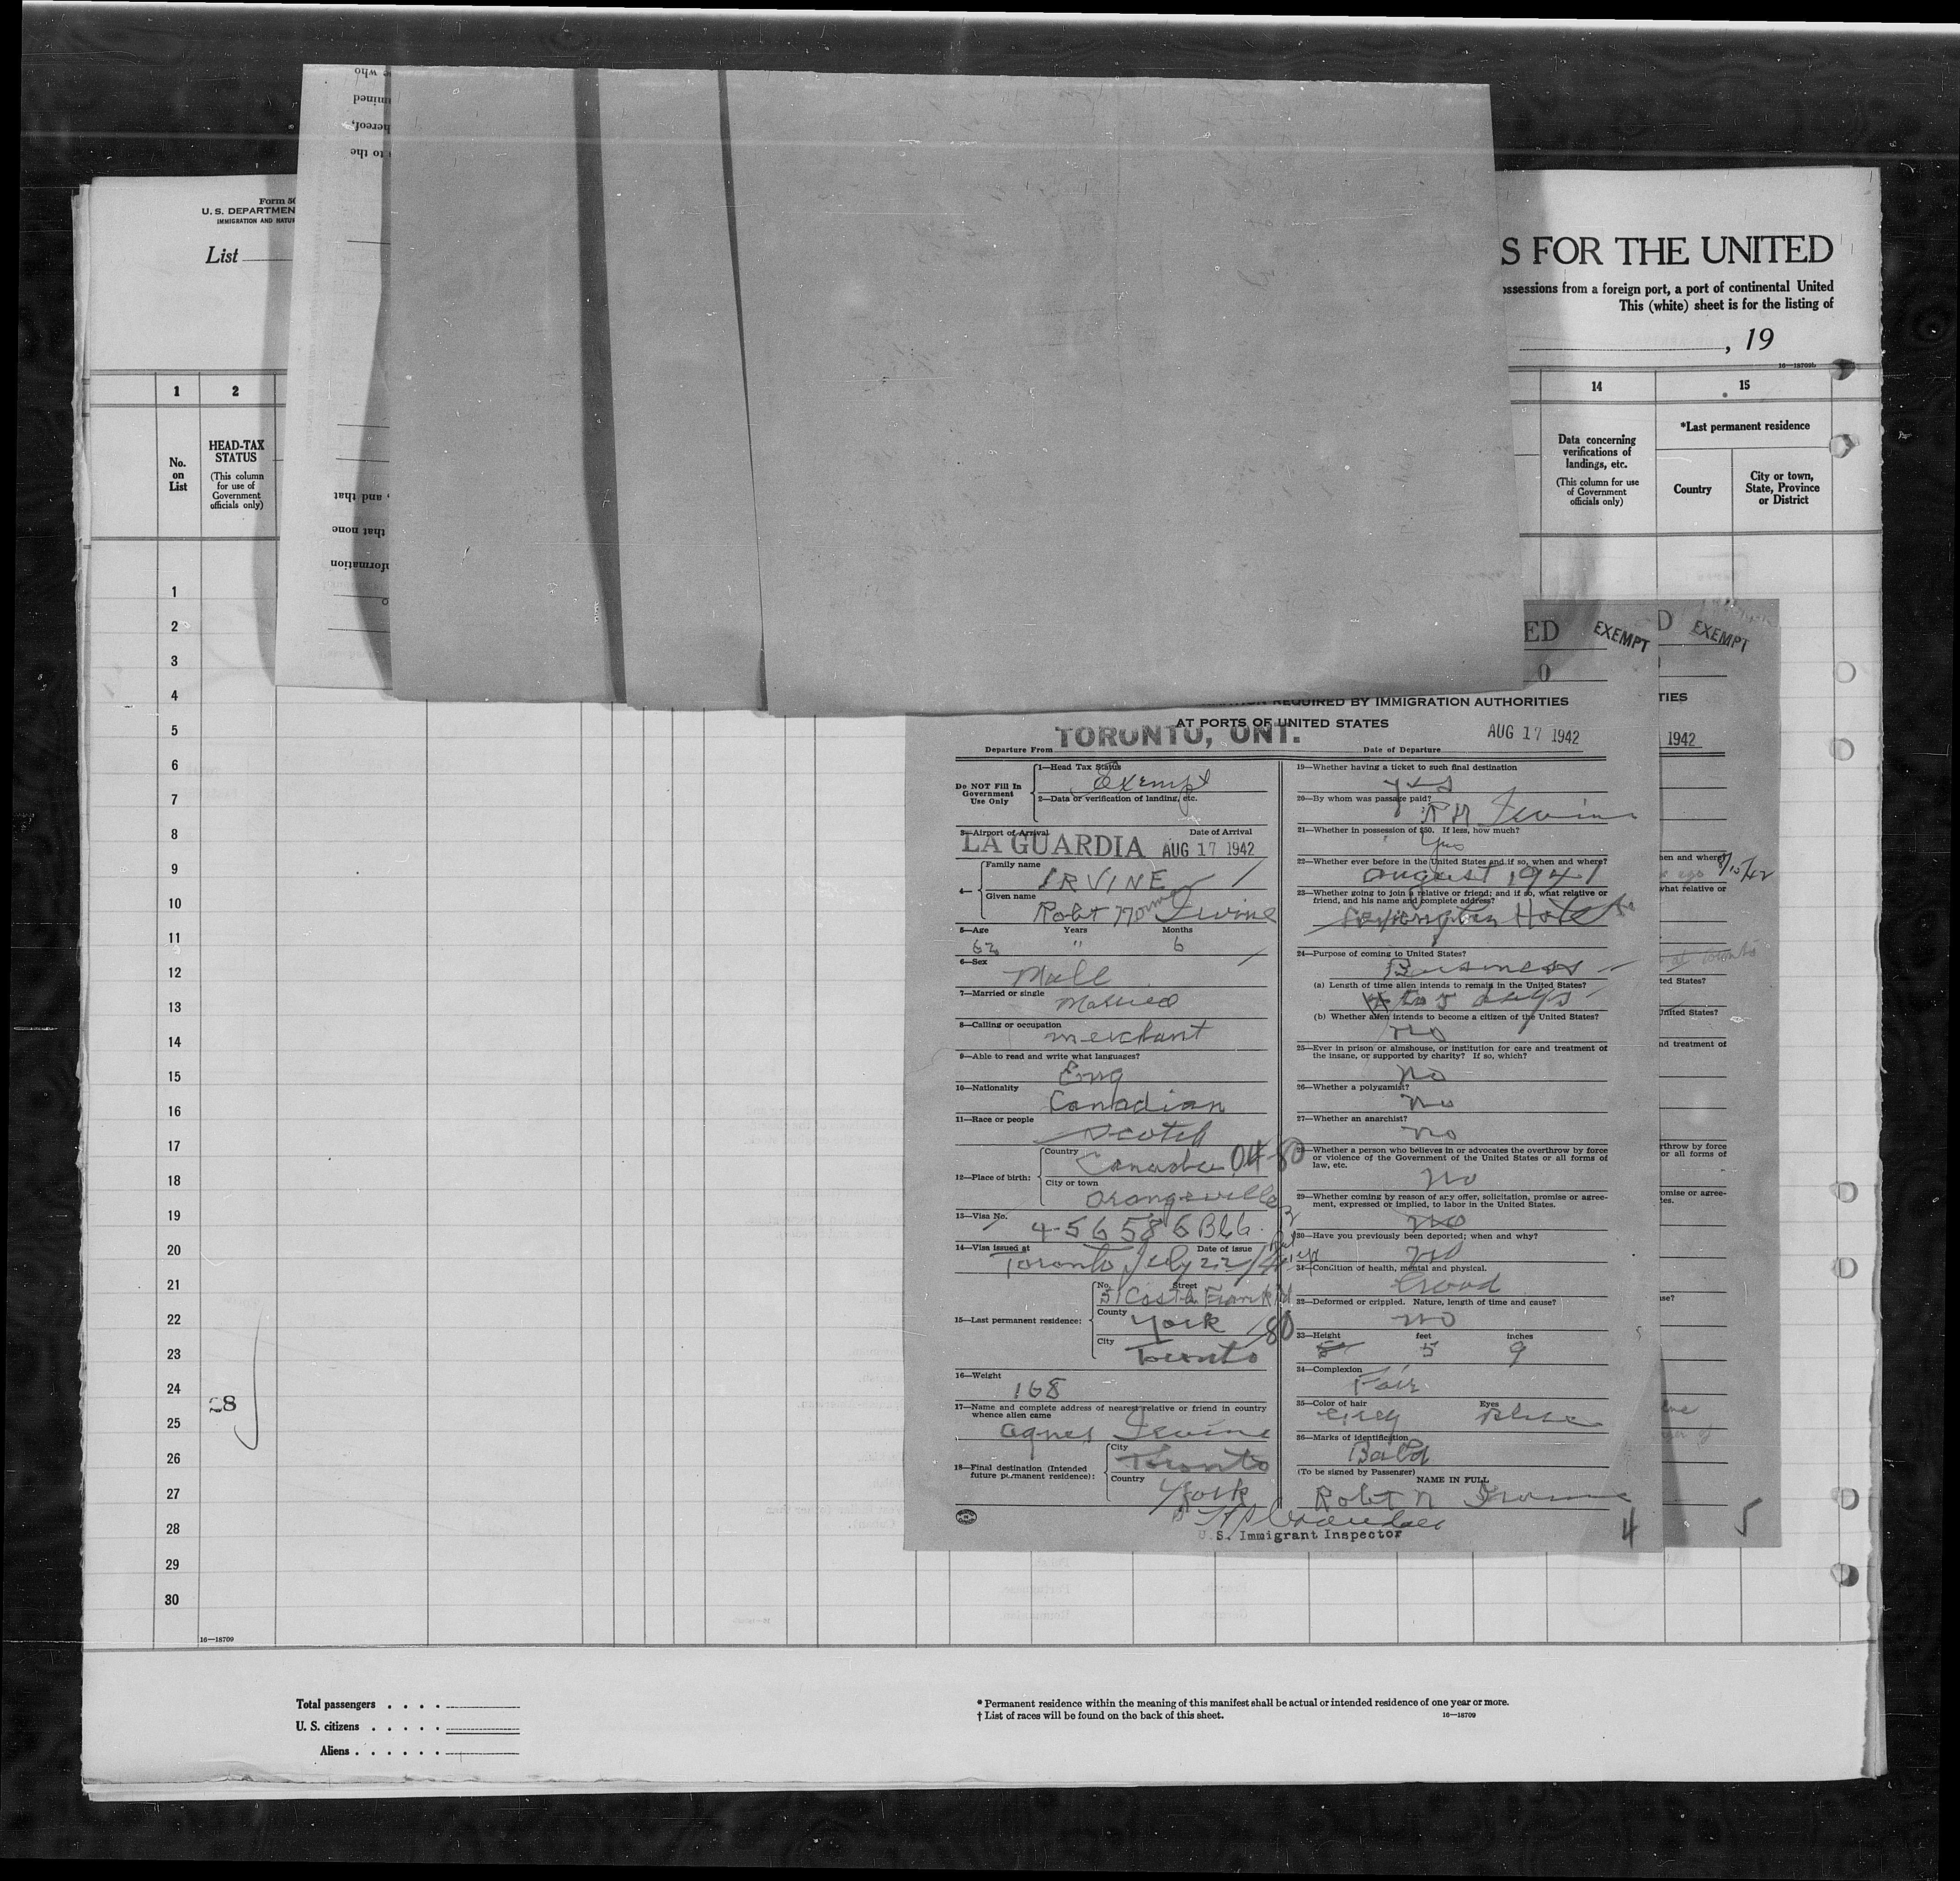 Form 50
U. S. DEPARTMEN
IMMIGRATION AND NATUR
List
S FOR THE UNITED
ossessions from a foreign port, a port of continental United
This (white) sheet is for the listing of
, 19
16—18709b
1
2
14
15
No. on List
HEAD-TAX STATUS
(This column for use of Government officials only)
Data concerning verifications of landings, etc.
(This column for use of Government officials only)
*Last permanent residence
Country
City or town, State, Province or District
e who
mined
hereof,
s to the
, and that
that none
nformation
1
2
3
4
5
6
7
8
9
10
11
12
13
14
15
16
17
18
19
20
21
22
23
24
25
26
27
28
29
30
28
16—18709
ED
EXEMPT
0
D
EXEMPT
REQUIRED BY IMMIGRATION AUTHORITIES
AT PORTS OF UNITED STATES
Departure From TORONTO, ONT.
Date of Departure AUG 17 1942
Do NOT Fill In Government Use Only
1—Head Tax Status
Exempt
2—Data or verification of landing, etc.
3—Airport of Arrival
Date of Arrival
LA GUARDIA AUG 17 1942
4—
Family name
IRVINE
Given name
Robt Irvine
5—Age
Years
Months
62 " 6
6—Sex
Male
7—Married or single
Married
8—Calling or occupation
merchant
9—Able to read and write what languages?
Eng
10—Nationality
Canadian
11—Race or people
Scotch
12—Place of birth:
Country
Canada 04-80
City or town
Orangeville
13—Visa No.
4-56586 B&6
14—Visa issued at
Date of issue
Toronto July 22/4
15—Last permanent residence:
No.
Street
51 Castle Frank Rd
County
York /80
City
Toronto
16—Weight
168
17—Name and complete address of nearest relative or friend in country whence alien came
Agnes Irvine
18—Final destination (Intended future permanent residence):
City
Toronto
Country
York
19—Whether having a ticket to such final destination
yes
20—By whom was passage paid?
R N Irvine
21—Whether in possession of $50. If less, how much?
Yes
22—Whether ever before in the United States and if so, when and where?
August 1941
23—Whether going to join a relative or friend; and if so, what relative or friend, and his name and complete address?
Hotel
24—Purpose of coming to United States?
Business
(a) Length of time alien intends to remain in the United States?
4 to 5 days
(b) Whether alien intends to become a citizen of the United States?
no
25—Ever in prison or almshouse, or institution for care and treatment of the insane, or supported by charity? If so, which?
no
26—Whether a polygamist?
no
27—Whether an anarchist?
no
28—Whether a person who believes in or advocates the overthrow by force or violence of the Government of the United States or all forms of law, etc.
no
29—Whether coming by reason of any offer, solicitation, promise or agreement, expressed or implied, to labor in the United States.
no
30—Have you previously been deported; when and why?
no
31—Condition of health, mental and physical.
Good
32—Deformed or crippled. Nature, length of time and cause?
no
33—Height
feet
inches
5 9
34—Complexion
Fair
35—Color of hair
Eyes
Grey Blue
36—Marks of identification
Bald
(To be signed by Passenger)
NAME IN FULL
Robt N Irvine
U.S. Immigrant Inspector
4
TIES
1942
hen and where?
what relative or
at Toronto
ted States?
United States?
nd treatment of
rthrow by force
or all forms of
omise or agree-
tes.
se?
5
Total passengers . . . .
U. S. citizens . . . . .
Aliens . . . . . .
* Permanent residence within the meaning of this manifest shall be actual or intended residence of one year or more.
† List of races will be found on the back of this sheet.
16—18709